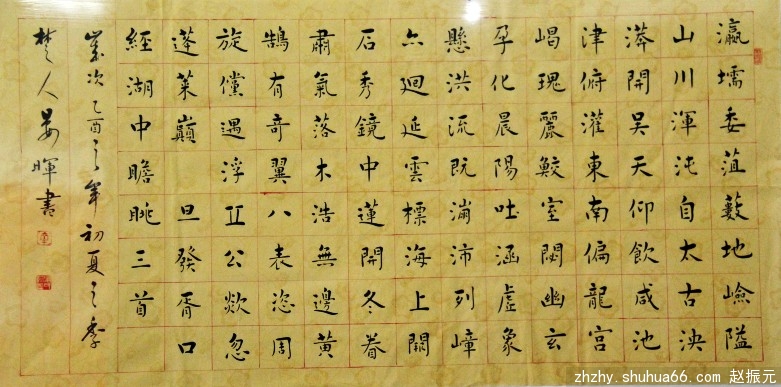 瀛壖委菹藪地嶮隘
山川渾沌自太古泱
漭開吴天仰飲咸池
津俯灌東南偏龍宫
嵑瑰麗鮫室閟幽玄
孕化晨陽吐涵虛象
懸洪流既滿沛列嶂
亦廻延雲標海上關
石秀鏡中蓮開冬眷
肅氣落木浩無邊黄
鵠有奇翼八表恣周
旋儻遇浮丘公欻忽
蓬萊巔 旦發胥口
經湖中瞻眺三首
歲次乙酉之年初夏之季
楚人晏暉書
zhzhy.shuhua66.com 赵振元